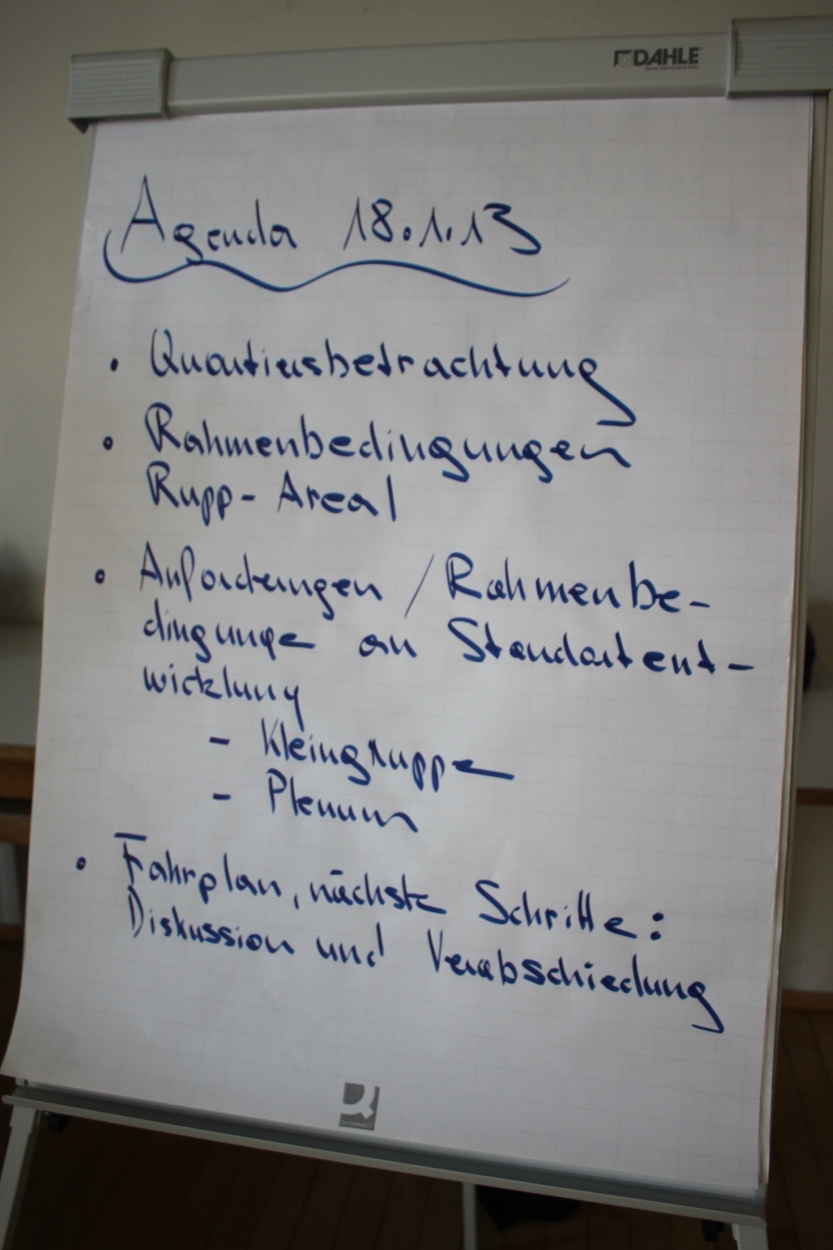 DAHLE
Agenda 18.1.13
• Quartiersbetrachtung
• Rahmenbedingungen
Rupp-Areal
• Anforderungen / Rahmenbe-
dingungen an Standortent-
wicklung
- Kleingruppe
- Plenum
• Fahrplan, nächste Schritte:
Diskussion und Verabschiedung